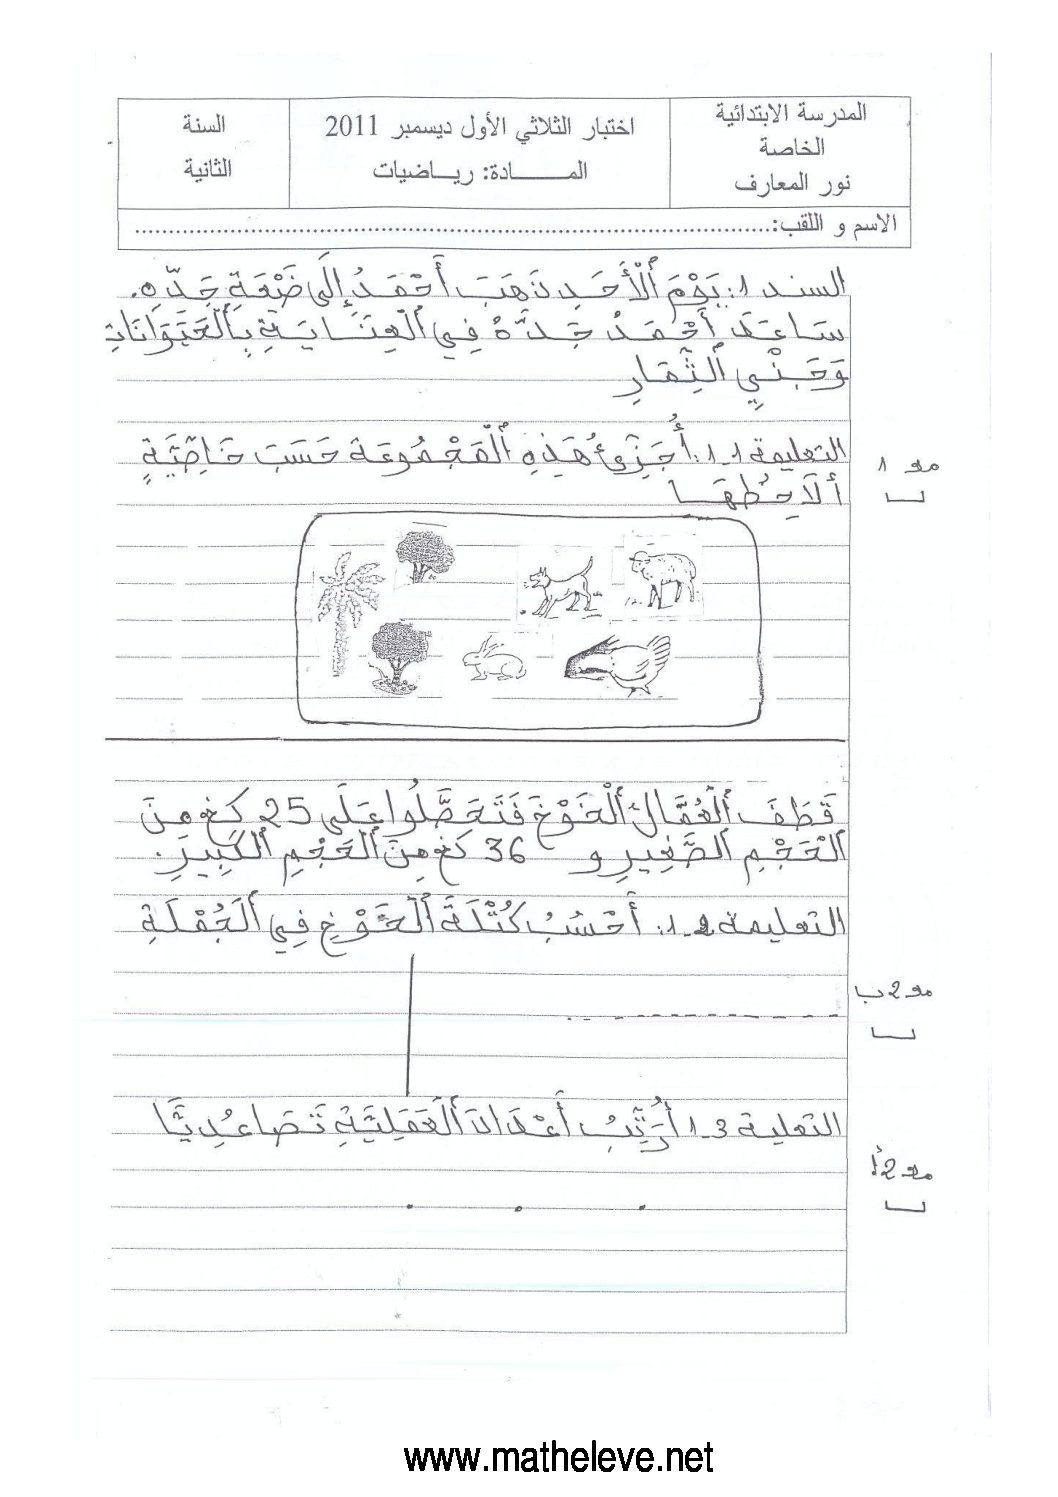 المدرسة الابتدائية
الخاصة
نور المعارف
اختبار الثلاثي الأول ديسمبر 2011
المـــــــادة: ريـــاضيات
السنة
الثانية
الاسم و اللقب:...............................................................................................
السند 1: يَوْمَ ٱلْأَحَدِ ذَهَبَ أَحْمَدُ إِلَى ضَيْعَةِ جَدِّهِ.
سَاعَدَ أَحْمَدُ جَدَّهُ فِي ٱلْعِنَايَةِ بِٱلْحَيَوَانَاتِ
وَجَنْيِ ٱلثِّمَارِ
التعليمة 1_1: أُجَزِّئُ هَذِهِ ٱلْمَجْمُوعَةَ حَسَبَ خَاصِّيَّةٍ
أُلَاحِظُهَا
مع 1
قَطَفَ ٱلْعُمَّالُ ٱلْخَوْخَ فَتَحَصَّلُوا عَلَى 25 كغ مِنَ
ٱلْحَجْمِ ٱلصَّغِيرِ و 36 كغ مِنَ ٱلْحَجْمِ ٱلْكَبِيرِ.
التعليمة 2_1: أَحْسُبُ كُتْلَةَ ٱلْخَوْخِ فِي ٱلْجُمْلَةِ
مع 2 ب
التعلية 3_1 أُرَتِّبُ أَعْدَادَ ٱلْعَمَلِيَّةِ تَصَاعُدِيًّا
مع 2 أ
www.matheleve.net